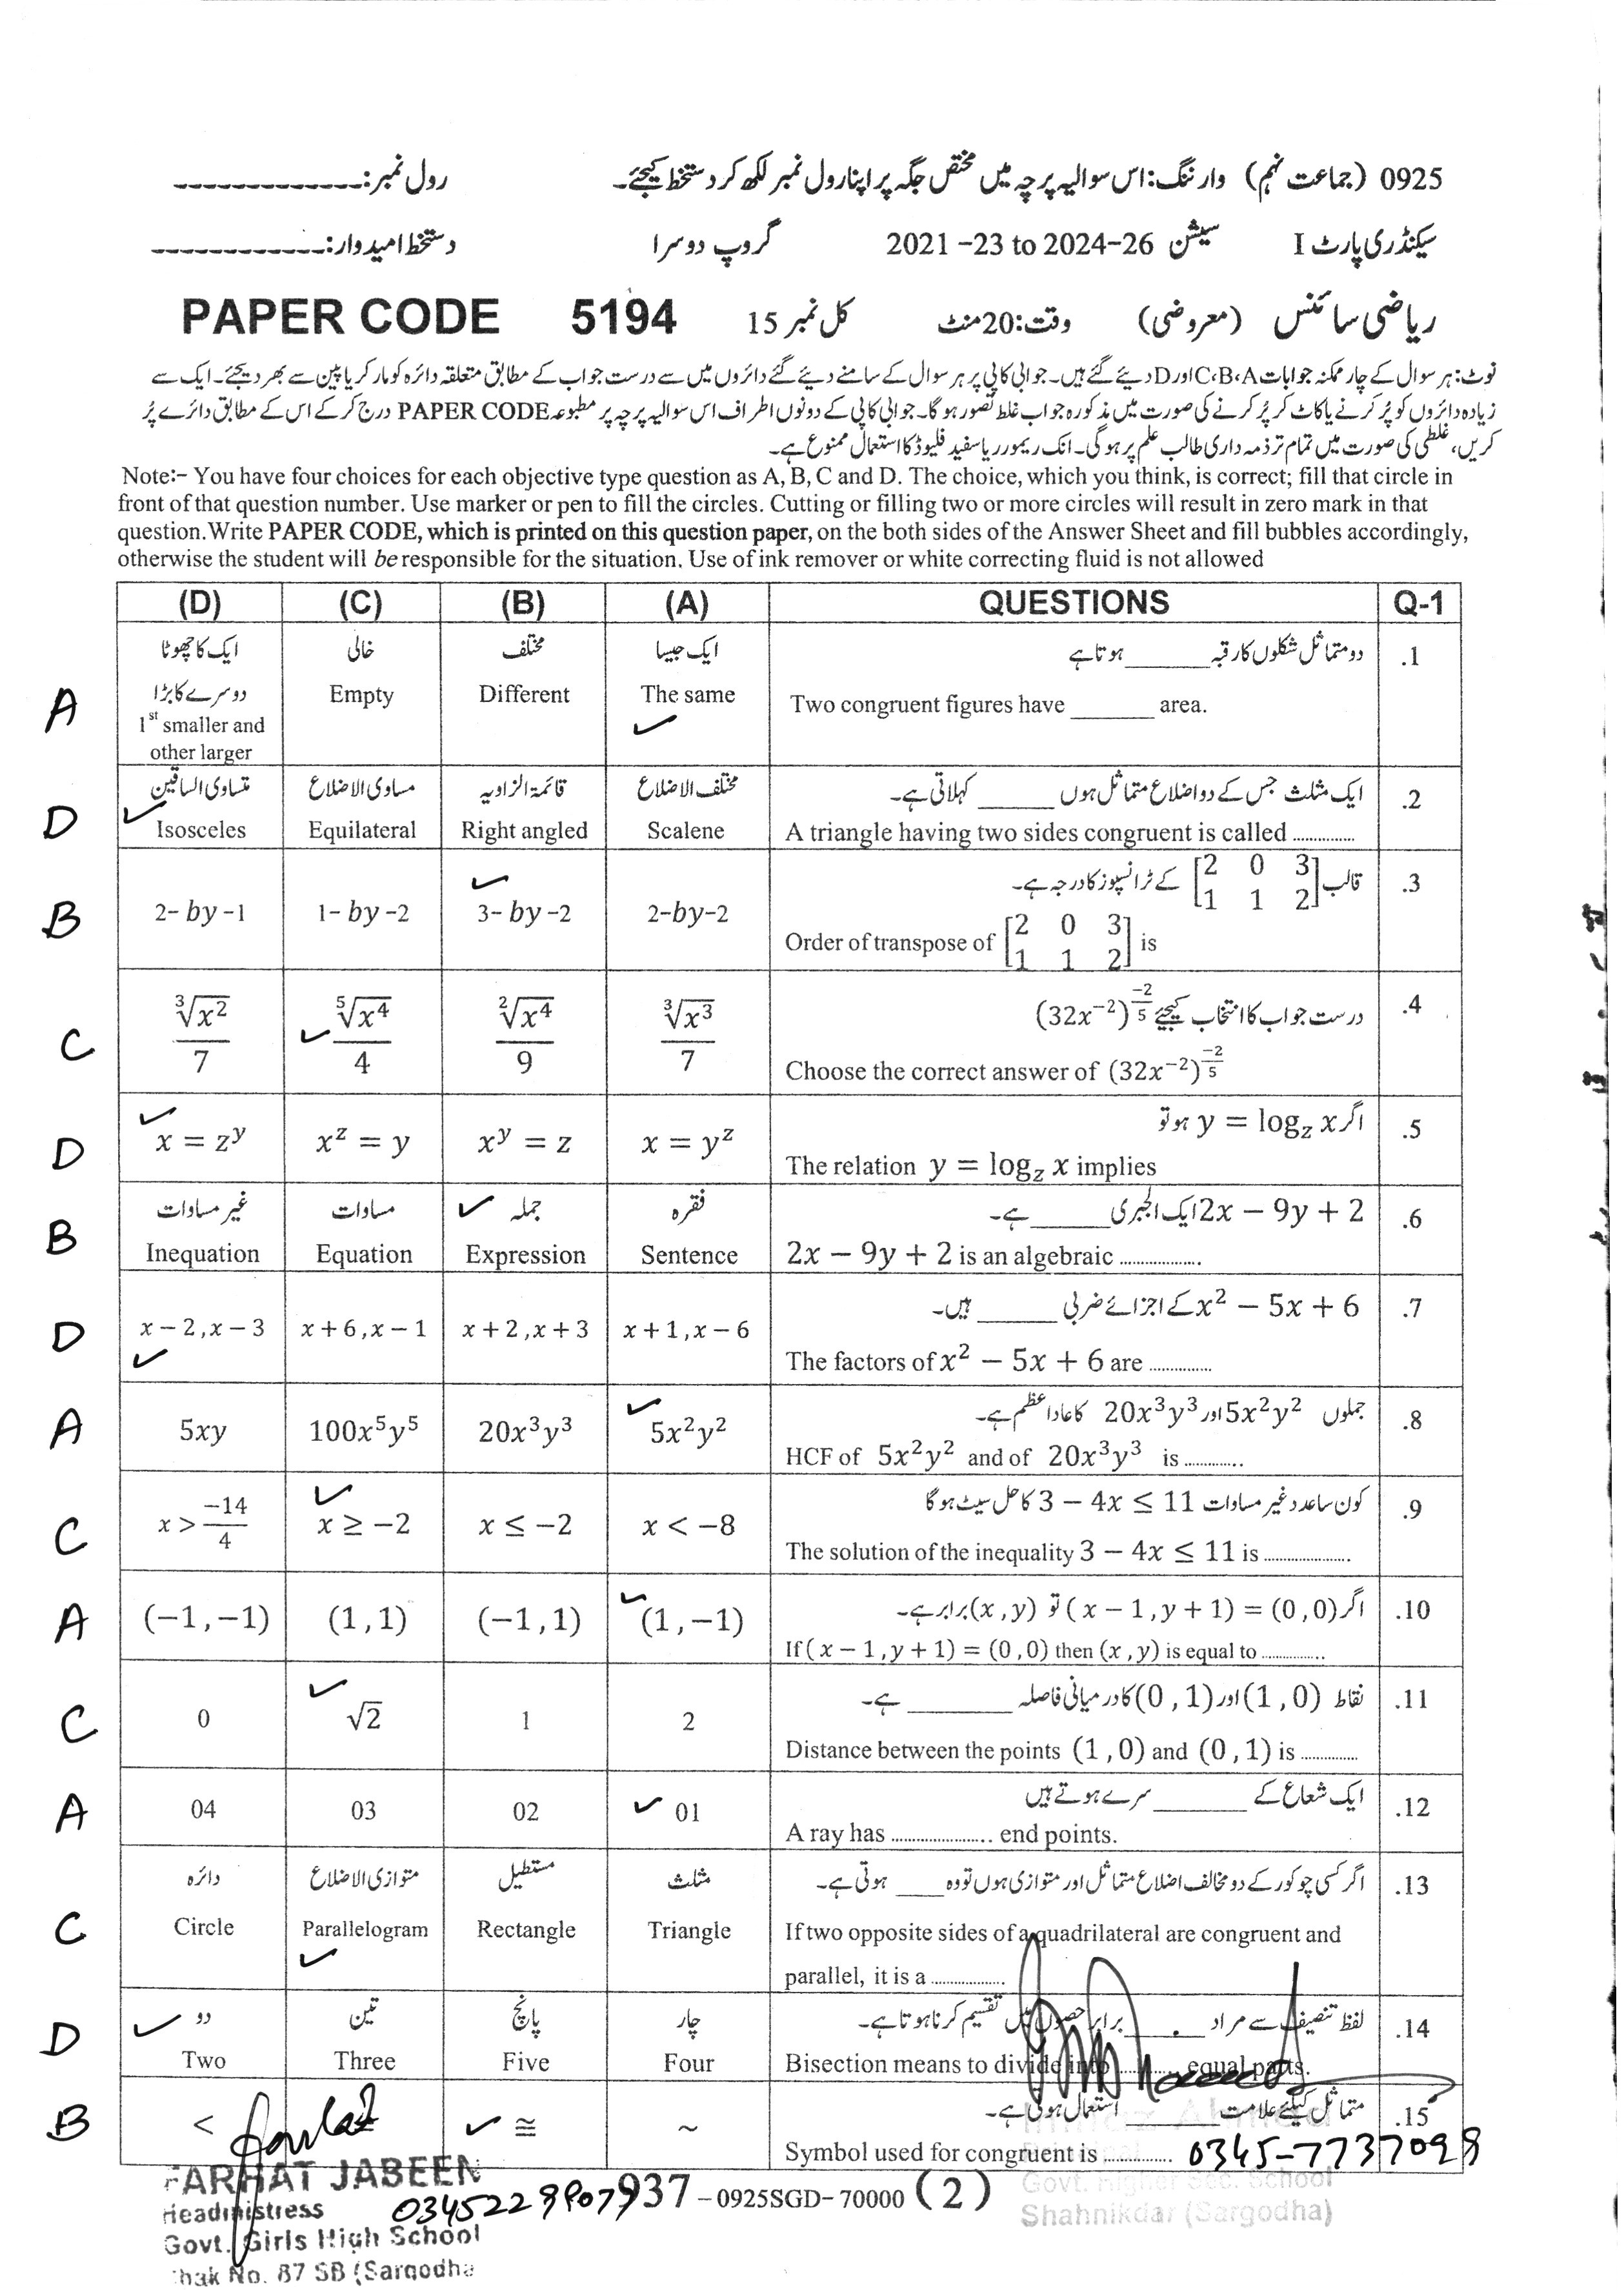 0925 (جماعت نہم) وارننگ: اس سوالیہ پرچہ میں مختص جگہ پر اپنا رول نمبر لکھ کر دستخط کیجئے۔ رول نمبر:_ _ _ _ _ _ _ _ _ _ _ _ _
سیکنڈری پارٹ I سیشن 2021 -23 to 2024-26 گروپ دوسرا دستخط امیدوار:_ _ _ _ _ _ _ _ _ _ _ _
ریاضی سائنس (معروضی) وقت: 20 منٹ کل نمبر 15 PAPER CODE 5194
نوٹ: ہر سوال کے چار ممکنہ جوابات A، B، C اور D دیئے گئے ہیں۔ جوابی کاپی پر ہر سوال کے سامنے دیئے گئے دائروں میں سے درست جواب کے مطابق متعلقہ دائرہ کو مارکر یا پین سے بھر دیجئے۔ ایک سے
زیادہ دائروں کو پُر کرنے یا کاٹ کر پُر کرنے کی صورت میں مذکورہ جواب غلط تصور ہوگا۔ جوابی کاپی کے دونوں اطراف اس سوالیہ پرچہ پر مطبوعہ PAPER CODE درج کر کے اس کے مطابق دائرے پُر
کریں، غلطی کی صورت میں تمام تر ذمہ داری طالب علم پر ہوگی۔ انک ریمور ریا سفید فلیوڈ کا استعمال ممنوع ہے۔
Note:- You have four choices for each objective type question as A, B, C and D. The choice, which you think, is correct; fill that circle in
front of that question number. Use marker or pen to fill the circles. Cutting or filling two or more circles will result in zero mark in that
question.Write PAPER CODE, which is printed on this question paper, on the both sides of the Answer Sheet and fill bubbles accordingly,
otherwise the student will be responsible for the situation. Use of ink remover or white correcting fluid is not allowed
(D) (C) (B) (A) QUESTIONS Q-1
ایک کا چھوٹا خالی مختلف ایک جیسا دو متماثل شکلوں کا رقبہ ______ ہوتا ہے .1
دوسرے کا بڑا
A 1st smaller and other larger Empty Different The same ✓ Two congruent figures have ______ area.
متساوی الساقین مساوی الاضلاع قائمۃ الزاویہ مختلف الاضلاع ایک مثلث جس کے دو اضلاع متماثل ہوں ______ کہلاتی ہے۔ .2
D ✓ Isosceles Equilateral Right angled Scalene A triangle having two sides congruent is called ..............
قالب [2 0 3; 1 1 2] کے ٹرانسپوز کا درجہ ہے۔ .3
B 2- by -1 1- by -2 ✓ 3- by -2 2-by-2 Order of transpose of [2 0 3; 1 1 2] is
درست جواب کا انتخاب کیجیئے (32x⁻²)^(-2/5) .4
C ∛x²/7 ✓ ⁵√x⁴/4 ²√x⁴/9 ∛x³/7 Choose the correct answer of (32x⁻²)^(-2/5)
اگر y = log_z x ہو تو .5
D ✓ x = z^y x^z = y x^y = z x = y^z The relation y = log_z x implies
غیر مساوات مساوات ✓ جملہ فقرہ 2x − 9y + 2 ایک الجبری ______ ہے۔ .6
B Inequation Equation Expression Sentence 2x − 9y + 2 is an algebraic ..................
x² − 5x + 6 کے اجزائے ضربی ______ ہیں۔ .7
D x − 2, x − 3 ✓ x + 6, x − 1 x + 2, x + 3 x + 1, x − 6 The factors of x² − 5x + 6 are ..............
جملوں 5x²y² اور 20x³y³ کا عاد اعظم ہے۔ .8
A 5xy 100x⁵y⁵ 20x³y³ ✓ 5x²y² HCF of 5x²y² and of 20x³y³ is .............
کون سا عدد غیر مساوات 3 − 4x ≤ 11 کا حل سیٹ ہوگا .9
C x > -14/4 ✓ x ≥ −2 x ≤ −2 x < −8 The solution of the inequality 3 − 4x ≤ 11 is ...................
اگر (x − 1, y + 1) = (0,0) تو (x, y) برابر ہے۔ .10
A (−1, −1) (1, 1) (−1, 1) ✓ (1, −1) If (x − 1, y + 1) = (0,0) then (x, y) is equal to ..............
نقاط (1, 0) اور (0, 1) کا درمیانی فاصلہ ______ ہے۔ .11
C 0 ✓ √2 1 2 Distance between the points (1, 0) and (0, 1) is .............
ایک شعاع کے ______ سرے ہوتے ہیں .12
A 04 03 02 ✓ 01 A ray has ....................... end points.
دائرہ متوازی الاضلاع مستطیل مثلث اگر کسی چوکور کے دو مخالف اضلاع متماثل اور متوازی ہوں تو وہ ____ ہوتی ہے۔ .13
C Circle Parallelogram ✓ Rectangle Triangle If two opposite sides of a quadrilateral are congruent and
parallel, it is a .................
✓ دو تین پانچ چار لفظ تنصیف سے مراد ______ برابر حصوں میں تقسیم کرنا ہوتا ہے۔ .14
D Two Three Five Four Bisection means to divide into ............... equal parts.
متماثل کیلئے علامت ______ استعمال ہوتی ہے۔ .15
B < ✓ ≅ ~ Symbol used for congruent is ............... 0345-7737098
FARHAT JABEEN
937 -0925SGD-70000 (2)
Headmistress
Govt. Higher Sec. School
Govt. Girls High School
Shahnikdar (Sargodha)
Chak No. 87 SB (Sargodha